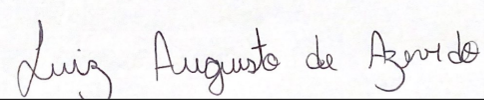 Luiz Augusto de Azevedo